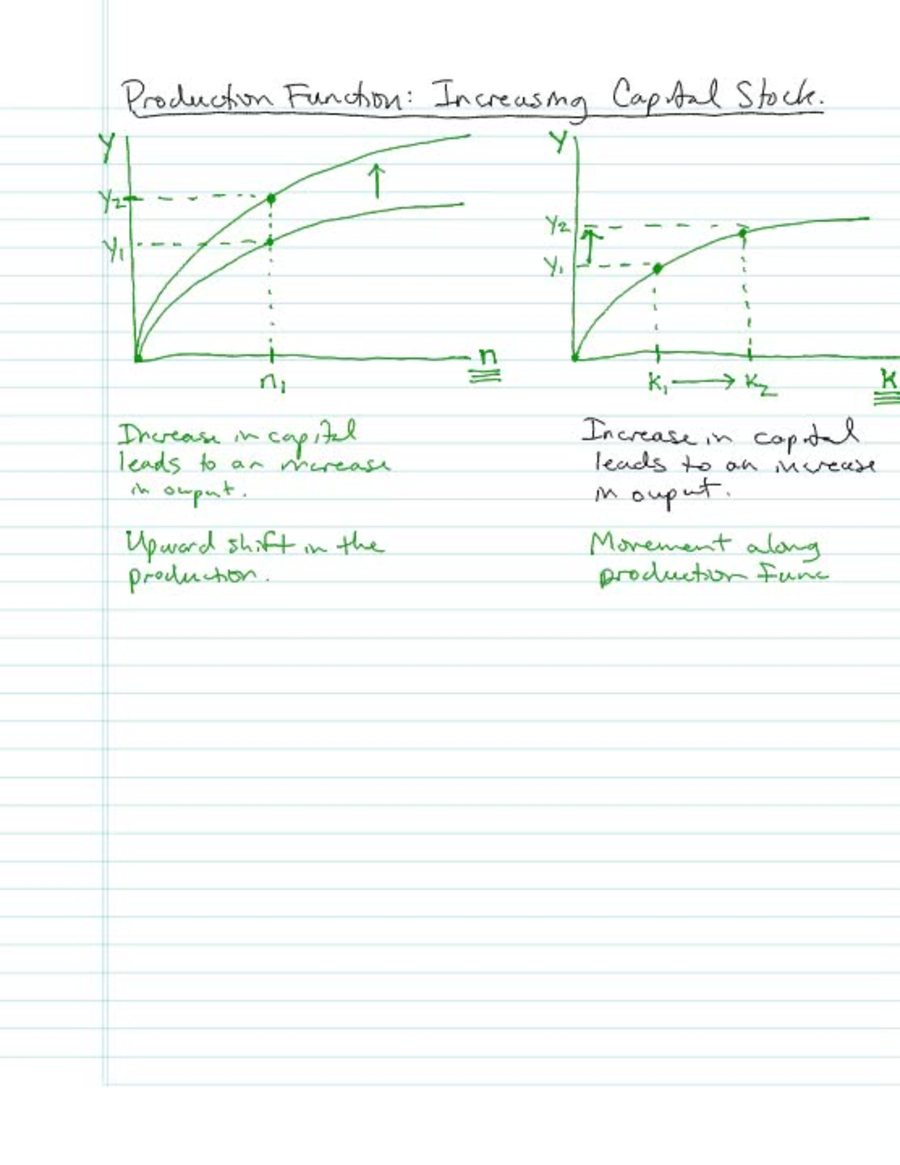 Production Function: Increasing Capital Stock.
Y
Y2
Y1
n1
n
Y
Y2
Y1
K1 → K2
K
Increase in capital
leads to an increase
in ouput.
Upward shift in the
production.
Increase in capital
leads to an increase
in ouput.
Movement along
production Func